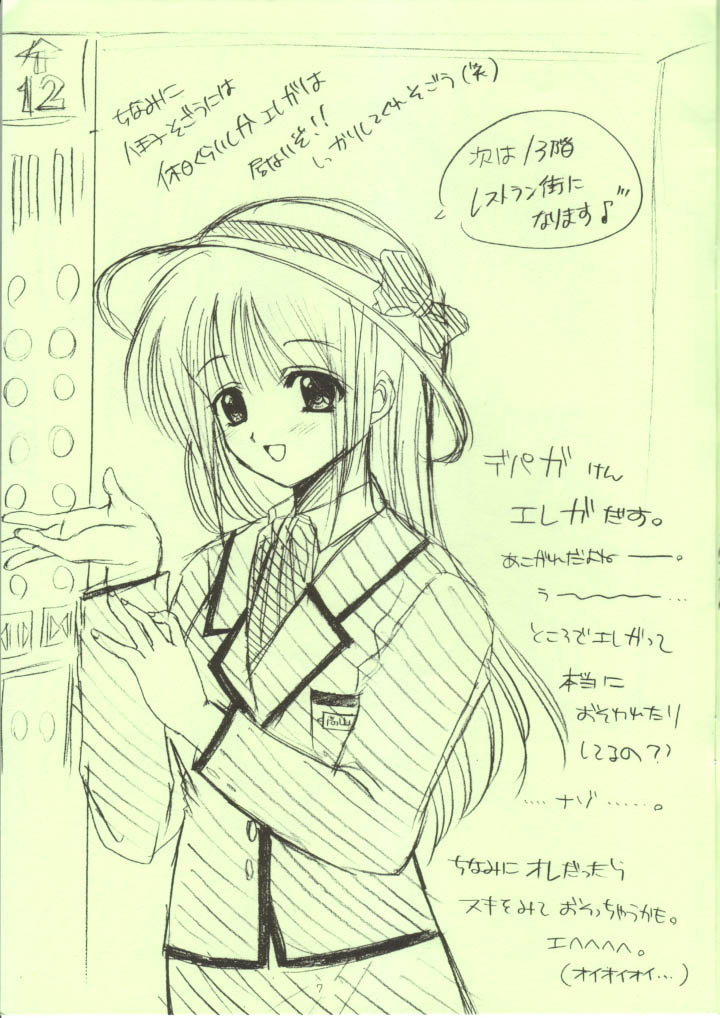 12
ちなみに
八王子そごうには
休日ぐらいしかエレガは
居ないぞ!!
しっかりしてくれそごう(笑)
次は13階
レストラン街に
なります♪
デパガ けん
エレガだす。
あこがれだよねー。
う〜〜〜…
ところでエレガって
本当に
おそわれたり
してるの??
‥‥ナゾ‥‥‥。
高山
ちなみにオレだったら
スキをみておそっちゃうかも。
エヘヘヘヘ。
(オイオイオイ…)
7